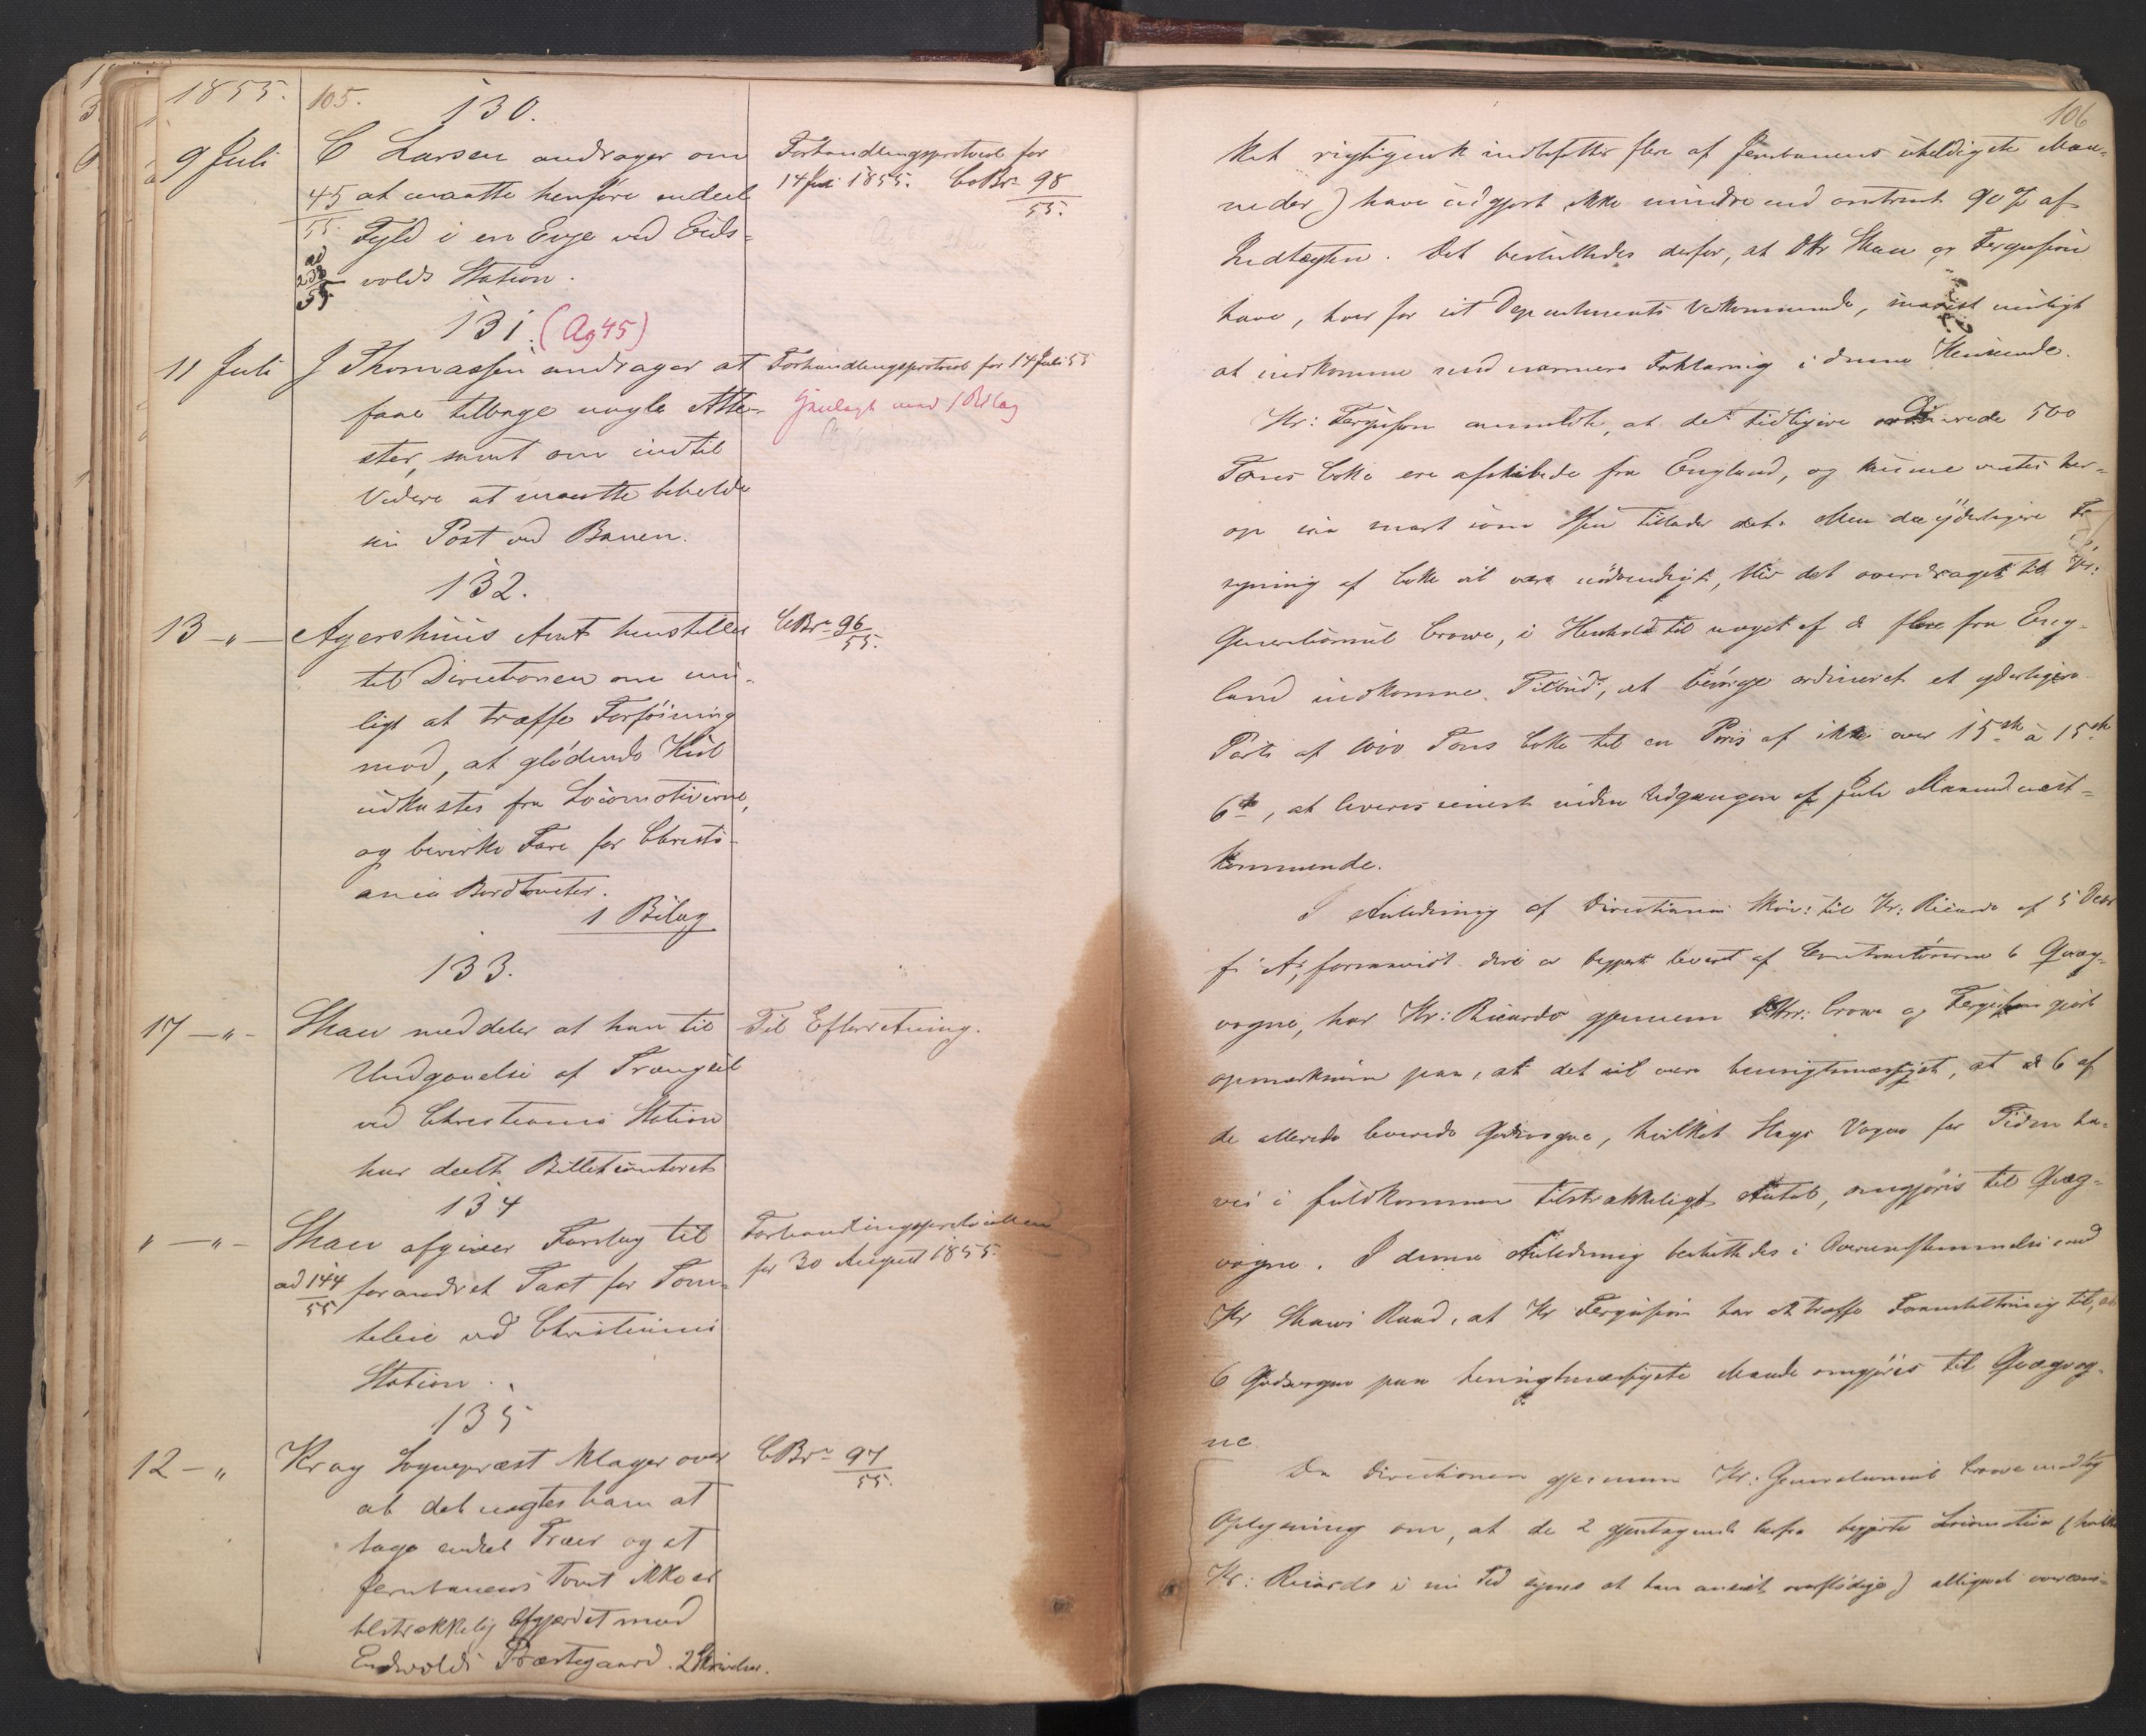 1855.
105.
130.
9 Juli
C Larsen andrager om
45
55.
at maatte henføre endeel
Fyld i en Evje ved Eids-
ad
55
volds Station.
Forhandlingsprotocol for
14 Juli 1855. CoBr 98
55.
131. (Ag 45)
11 Juli
J Thomassen andrager at
faae tilbage nogle Atte-
ster, samt om indtil
Videre at maatte beholde
sin Post ved Banen.
Forhandlingsprotocol for 14 Juli 55
henlagt med 1 Bilag
132.
13 -„-
Agershuus Amt henstiller
til Directionen om mu-
ligt at træffe Forføining
mod, at glødende Kul
udkastes fra Locomotiverne,
og bevirke Fare for Christi-
ania Bordtomter.
1 Bilag
CBr 96
55.
133.
17 -„-
Shaw meddeler at han til
Undgaaelse af Trængsel
ved Christiania Station
har deelt Billetcontoret
Til Efterretning.
134
„ -„-
Shaw afgiver Forslag til
ad 144
55
forandret Taxt for Tom-
teleie ved Christiania
Station.
Forhandlingsprotocollen
for 30 August 1855.
135
12 -„
Krag Sognepræst klager over
at det nægtes ham at
tage endeel Træer og at
Jernbanens Tomt ikke er
tilstrækkelig afgjerdet mod
Eidsvolds Præstegaard. 2 Skrivelser.
CBr 97
55.
106
ket rigtignok indbefatter flere af Jernbanens uheldigste Maa-
neder) have udgjort ikke mindre end omtrent 90 % af
Indtægten. Det besluttedes derfor, at DHr Shaw og Fergusson
have, hver for sit Departements Vedkommende, snarest muligt
at indkomme med nærmere Forklaring i denne Henseende.
Hr: Fergusson anmeldte, at de tidligere ordinerede 500
Tons Coke ere afskibede fra England, og kunne ventes her-
op saa snart som Isen tillader det. Men da yderligere For-
syning af Coke vil være nødvendigt, blev det overdraget til Hr:
Generalconsul Crowe, i Henhold til noget af de flere fra Eng-
land indkomne Tilbud, at besørge ordineret et yderligere
Parti af 1000 Tons Coke til en Priis af ikke over 15 sh a 15 sh
6 d, at leveres senest inden Udgangen af Juli Maaned næst-
kommende.
I Anledning af Directionens Skr: til Hr: Ricardo af 5 Decbr
f. A., hvori er begjært leveret af Contractørerne 6 Qvæg-
vogne, har Hr: Ricardo gjennem DHrr: Crowe og Fergusson gjort
opmærksom paa, at det vil være hensigtsmæssigst, at 6 af
de allerede leverede Godsvogne, hvilket Slags Vogne for Tiden ha-
ves i fuldkommen tilstrækkeligt Antal, omgjøres til Qvæg-
vogne. I denne Anledning besluttedes i Overeensstemmelse med
Hr Shaws Raad, at Hr Fergusson har at træffe Foranstaltning til, at
6 Godsvogne paa hensigtsmæssigste Maade omgjøres til Qvægvog-
ne.
Da Directionen gjennem Hr: Generalconsul Crowe modtog
Oplysning om, at de 2 gjentagende herfra begjærte Locomotiver (hvilke
Hr: Ricardo i sin Tid synes at have anseet overflødige) alligevel